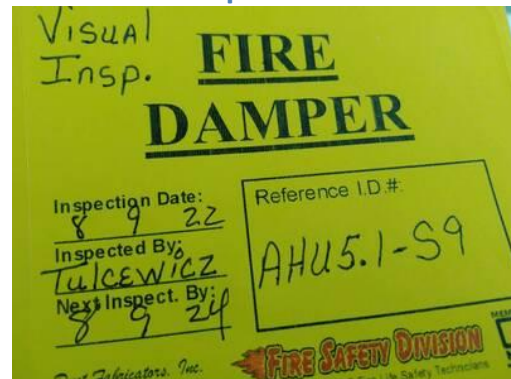 Visual
Insp.
FIRE
DAMPER
Inspection Date:
8 9 22
Inspected By:
Tulcewicz
Next Inspect. By:
8 9 24
Reference I.D.#:
AHU5.1-S9
Fabricators, Inc.
FIRE SAFETY DIVISION
Life Safety Technicians